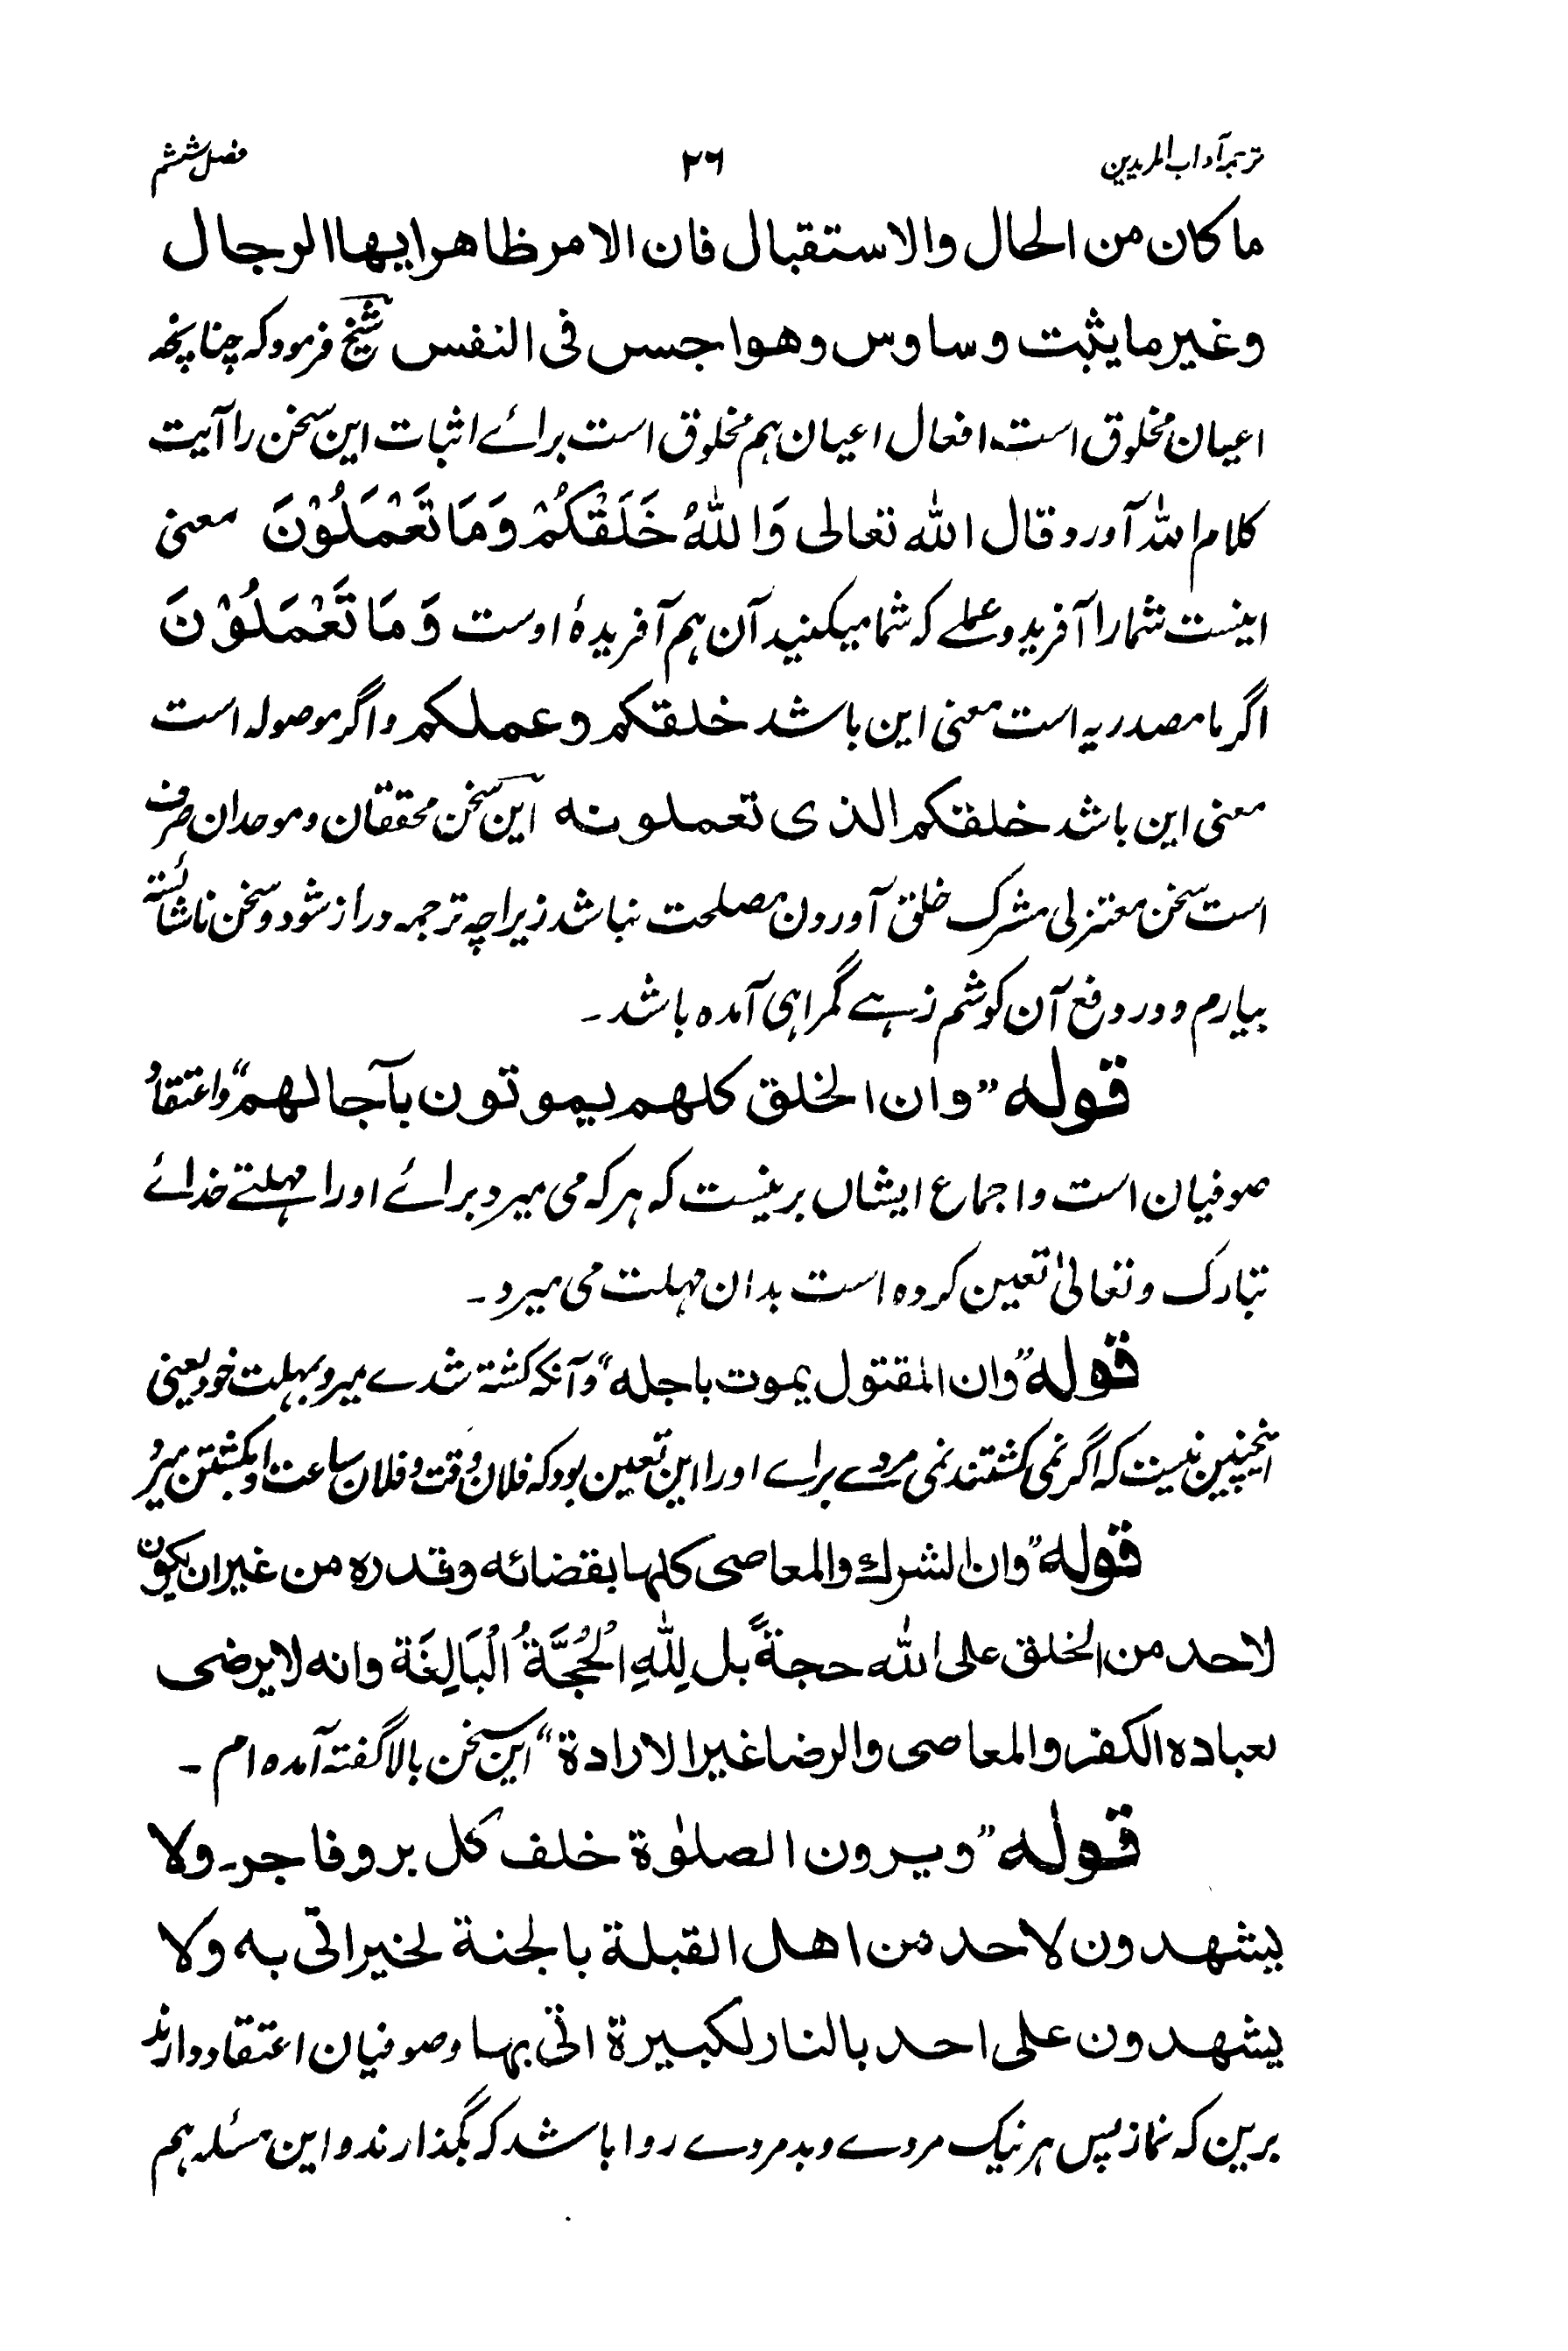 ترجمہ آداب المریدین ۲۶ فصل ششم
ما كان من الحال والاستقبال فان الامر ظاهر ايها الرجال
وغير ما يثبت وساوس وهواجس فى النفس شیخ فرمود کہ چنانچہ
اعیان مخلوق است افعال اعیان ہم مخلوق است برائے اثبات این سخن را آیت
کلام اللہ آورد قال الله تعالى وَاللّٰهُ خَلَقَكُمْ وَمَا تَعْمَلُوْنَ معنی
اینست شمارا آفرید و عملے کہ شما میکنید آن ہم آفریدۂ اوست وَمَا تَعْمَلُوْنَ
اگر ما مصدریہ است معنی این باشد خلقكم وعملكم و اگر موصولہ است
معنی این باشد خلقكم الذى تعملونه این سخن محققان و موحدان صرف
است سخن معتزلی مشرک خلق آوردن مصلحت نباشد زیراچہ ترجمہ دراز شود و سخن ناشائستہ
بیارم و در دفع آن کوشم زہے گمراہی آمدہ باشد۔
قوله ”وان الخلق كلهم يموتون بآجالهم“ و اعتقاد
صوفیان است و اجماع ایشاں برینست کہ ہر کہ می میرد برائے او را مہلتے خدائے
تبارک و تعالیٰ تعین کردہ است بدان مہلت می میرد۔
قوله ”وان المقتول يموت باجله“ و آنکہ کشتہ شدے میرد بمہلت خود یعنی
اینچنین نیست کہ اگر نمی کشتند نمی مردے براے او را این تعین بود کہ فلان وقت و فلان ساعت او بکشتن میرد
قوله ”وان الشرك والمعاصى كلها بقضائه وقدره من غير ان يكون
لاحد من الخلق على الله حجةً بل لِلّٰهِ الْحُجَّةُ الْبَالِغَة وانه لا يرضى
لعباده الكفر والمعاصى والرضا غير الارادة“ این سخن بالا گفتہ آمدہ ام۔
قوله ”ويرون الصلوٰة خلف كل بر وفاجر۔ ولا
يشهدون لاحد من اهل القبلة بالجنة لخير اتى به ولا
يشهدون على احد بالنار لكبيرة اتى بها و صوفیان اعتقاد دارند
برین کہ نماز پس ہر نیک مردے و بد مردے روا باشد کہ بگذارند و این مسئلہ ہم